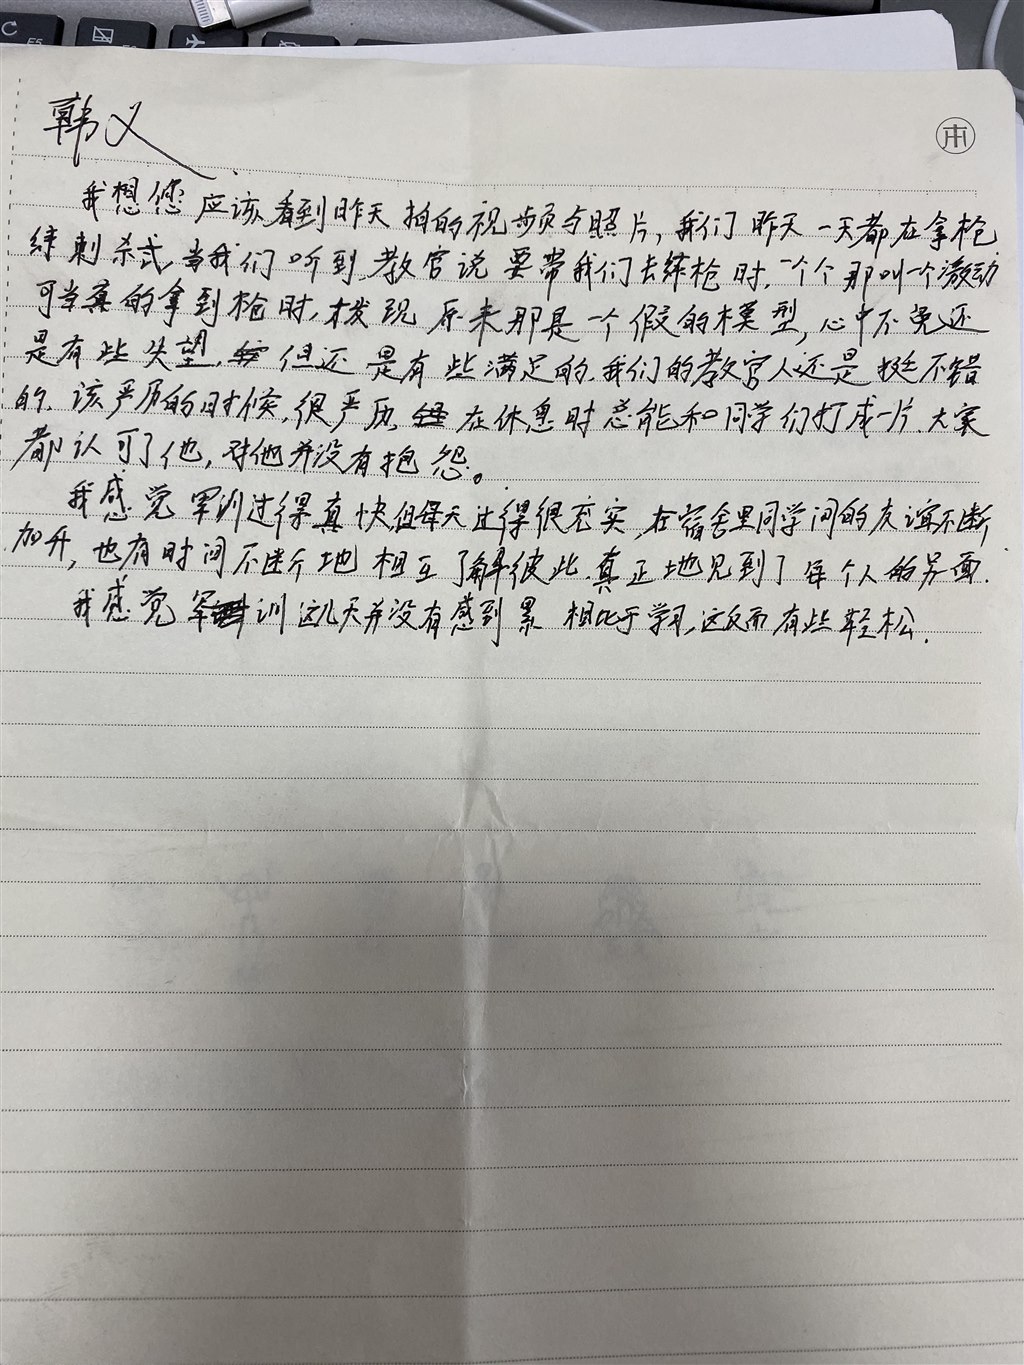 韩义
我想您应该看到昨天拍的视频与照片,我们昨天一天都在拿枪
练刺杀式,当我们听到教官说要带我们去练枪时,一个个那叫一个激动
可当真的拿到枪时,才发现原来那是一个假的模型,心中不免还
是有些失望,但还是有些满足的.我们的教官人还是挺不错
的.该严厉的时候,很严厉,在休息时总能和同学们打成一片.大家
都认可了他,对他并没有抱怨。
我感觉军训过得真快但每天过得很充实,在宿舍里同学间的友谊不断
加升,也有时间不断地相互了解彼此.真正地见到了每个人的另面.
我感觉军训这几天并没有感到累 相比于学习,这反而有些轻松.